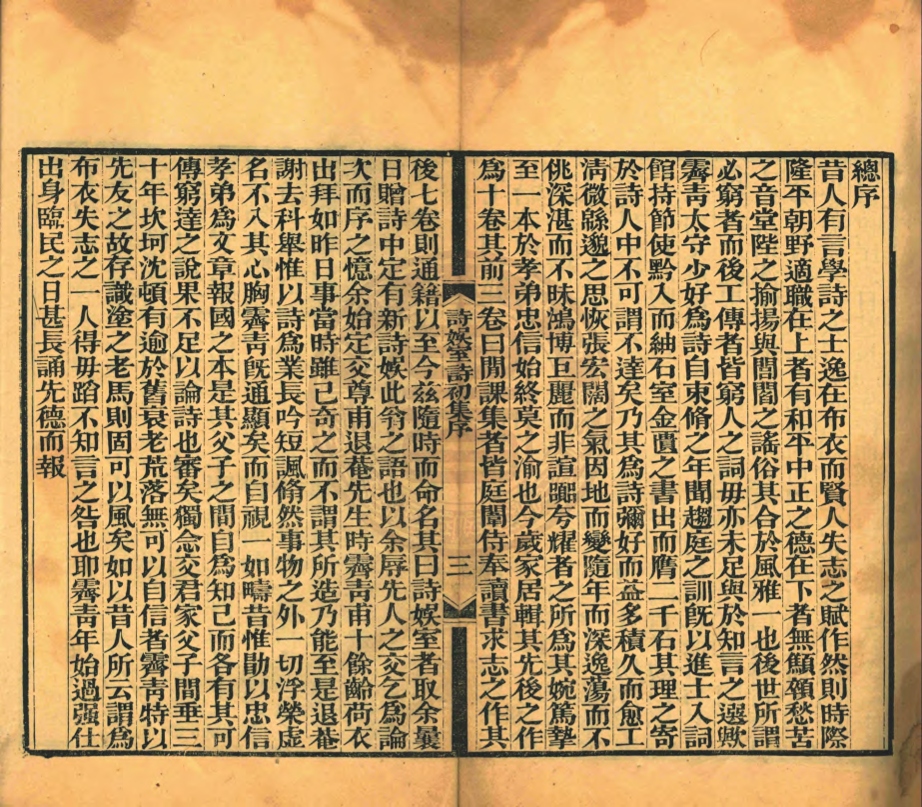 總序
昔人有言學詩之士逸在布衣而賢人失志之賦作然則時際
隆平朝野適職在上者有和平中正之德在下者無顦顇愁苦
之音堂陛之揄揚與閭閻之謠俗其合於風雅一也後世所謂
必窮者而後工傳者皆窮人之詞毋亦未足與於知言之選歟
霽青太守少好爲詩自束脩之年聞趨庭之訓旣以進士入詞
館持節使黔入而紬石室金匱之書出而膺二千石其理之寄
於詩人中不可謂不達矣乃其爲詩彌好而益多積久而愈工
淸微緜邈之思恢張宏闊之氣因地而變隨年而深逸蕩而不
佻深湛而不昧鴻博巨麗而非諠嘂夸耀者之所爲其婉篤摯
至一本於孝弟忠信始終莫之渝也今歲家居輯其先後之作
爲十卷其前三卷曰閒課集者皆庭闈侍奉讀書求志之作其
詩娛室詩初集序
三
後七卷則通籍以至今茲隨時而命名其曰詩娛室者取余曩
日贈詩中定有新詩娛此翁之語也以余辱先人之交乞爲論
次而序之憶余始定交尊甫退菴先生時霽靑甫十餘齡荷衣
出拜如昨日事當時雖已奇之而不謂其所造乃能至是退菴
謝去科舉惟以詩爲業長吟短諷翛然事物之外一切浮榮虛
名不入其心胸霽靑旣通顯矣而自視一如疇昔惟勖以忠信
孝弟爲文章報國之本是其父子之間自爲知己而各有其可
傳窮達之說果不足以論詩也審矣獨念交君家父子間垂三
十年坎坷沈頓有逾於舊衰老荒落無可以自信者霽靑特以
先友之故存識塗之老馬則固可以風矣如以昔人所云謂爲
布衣失志之一人得毋蹈不知言之咎也耶霽靑年始過强仕
出身臨民之日甚長誦先德而報